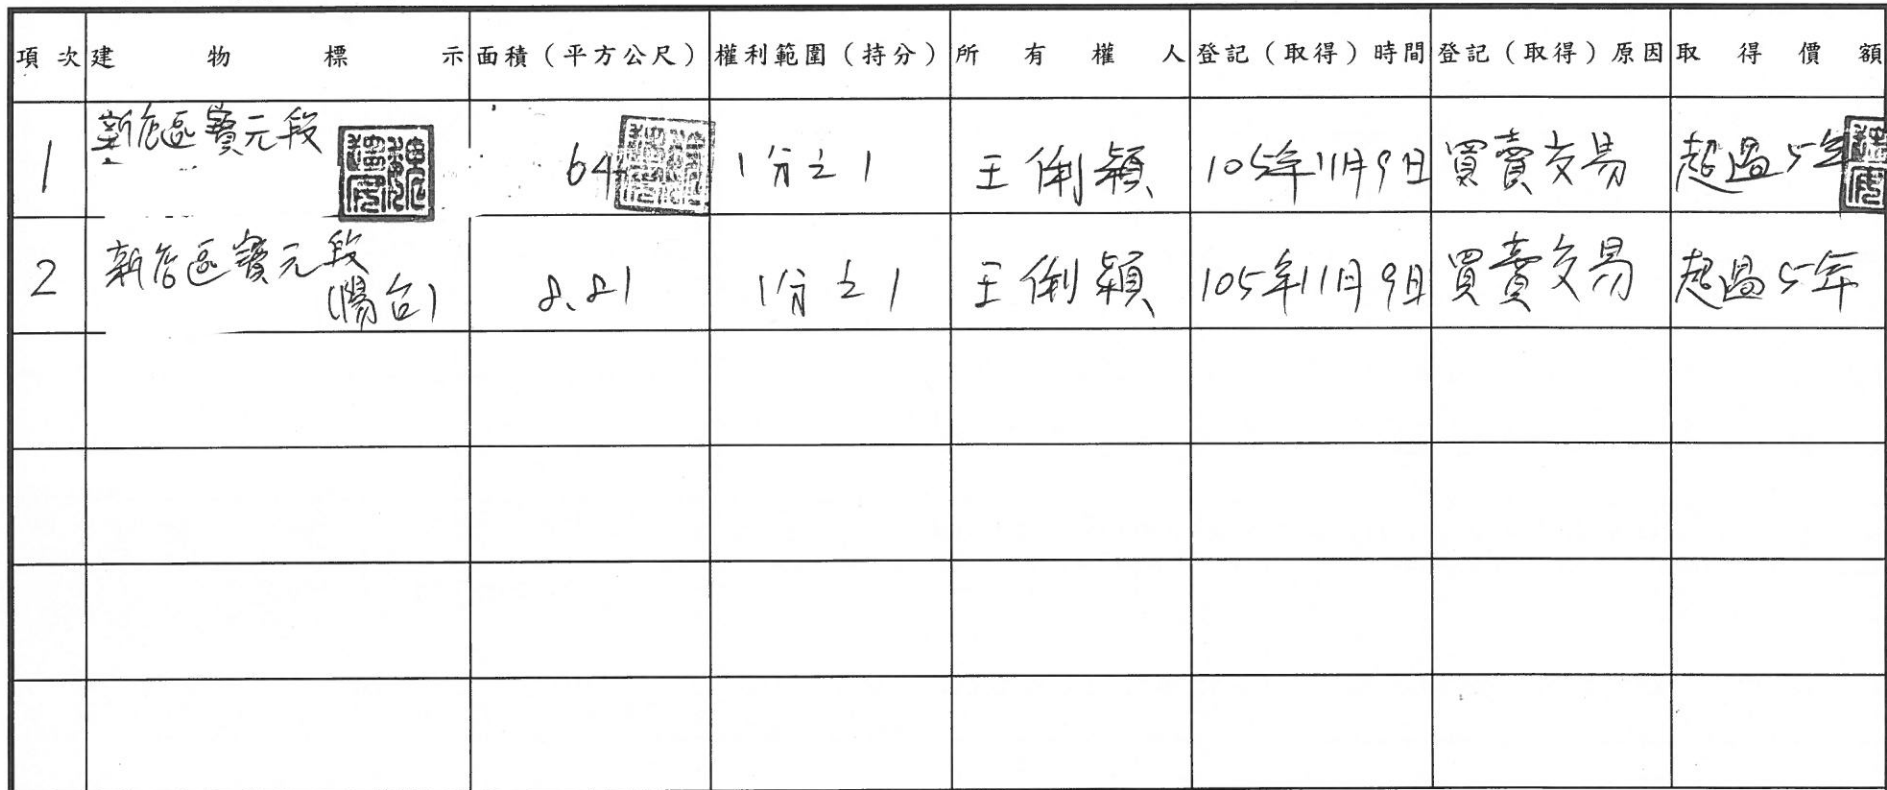 項次 建物標示 面積（平方公尺） 權利範圍（持分） 所有權人 登記（取得）時間 登記（取得）原因 取得價額
1 新店區寶元段 64 1分之1 王俐穎 105年11月9日 買賣交易 超過5年
2 新店區寶元段 8.81 1分之1 王俐穎 105年11月9日 買賣交易 超過5年
(陽台)